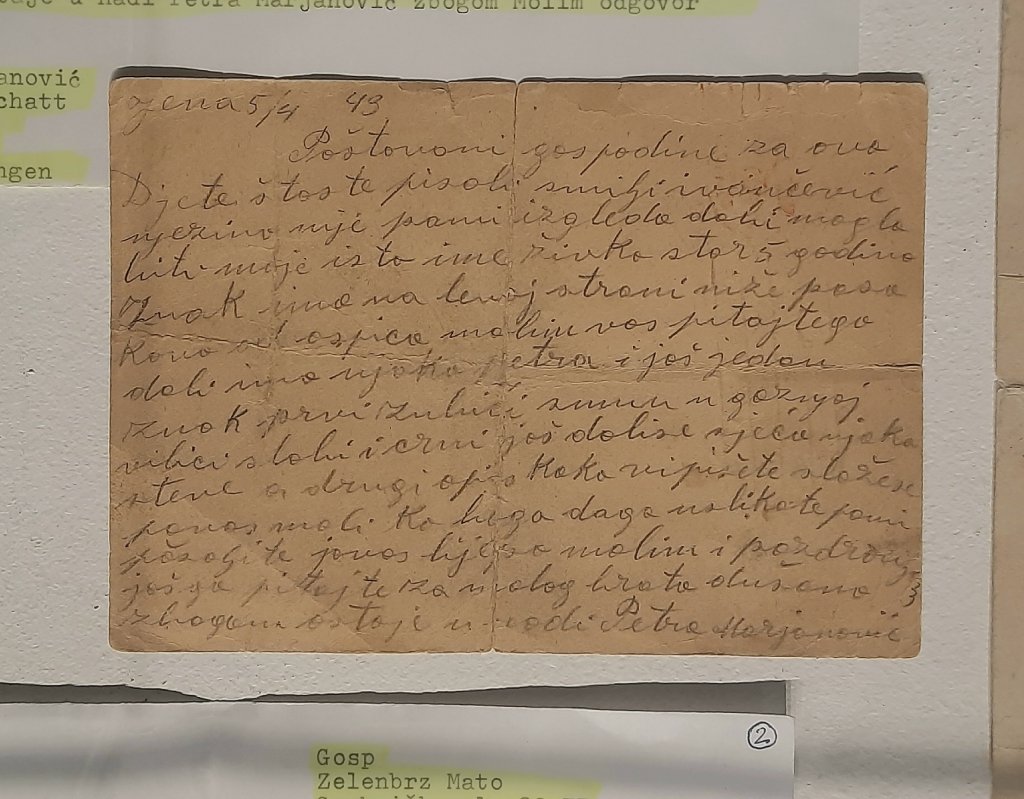 u nadi Petra Marjanović zbogom Molim odgovor
anović
chatt
ngen
5/4 43
Poštovani gospodine za ovo
Djete što ste pisali smilji ivančević
njezino nije pa mi izgleda dabi moglo
biti moje isto ime živko star 5 godina
Znak ima na levoj strani niže pasa
Kovo ospica molim vas pitajtega
dali ima ujaka Petra i još jedan
znak prvi zubići su mu u gornjoj
vilici slabi i crni još dalise sjeća ujaka
steve a drugi opis Kako vi pišete slažese
panas mali Ko boga daga uslikate pami
pošaljite javas lijepo molim i pozdravlja
još ga pitajte za malog brata dušana
zbogom ostaje u nadi Petra Marjanović
2
Gosp
Zelenbrz Mato